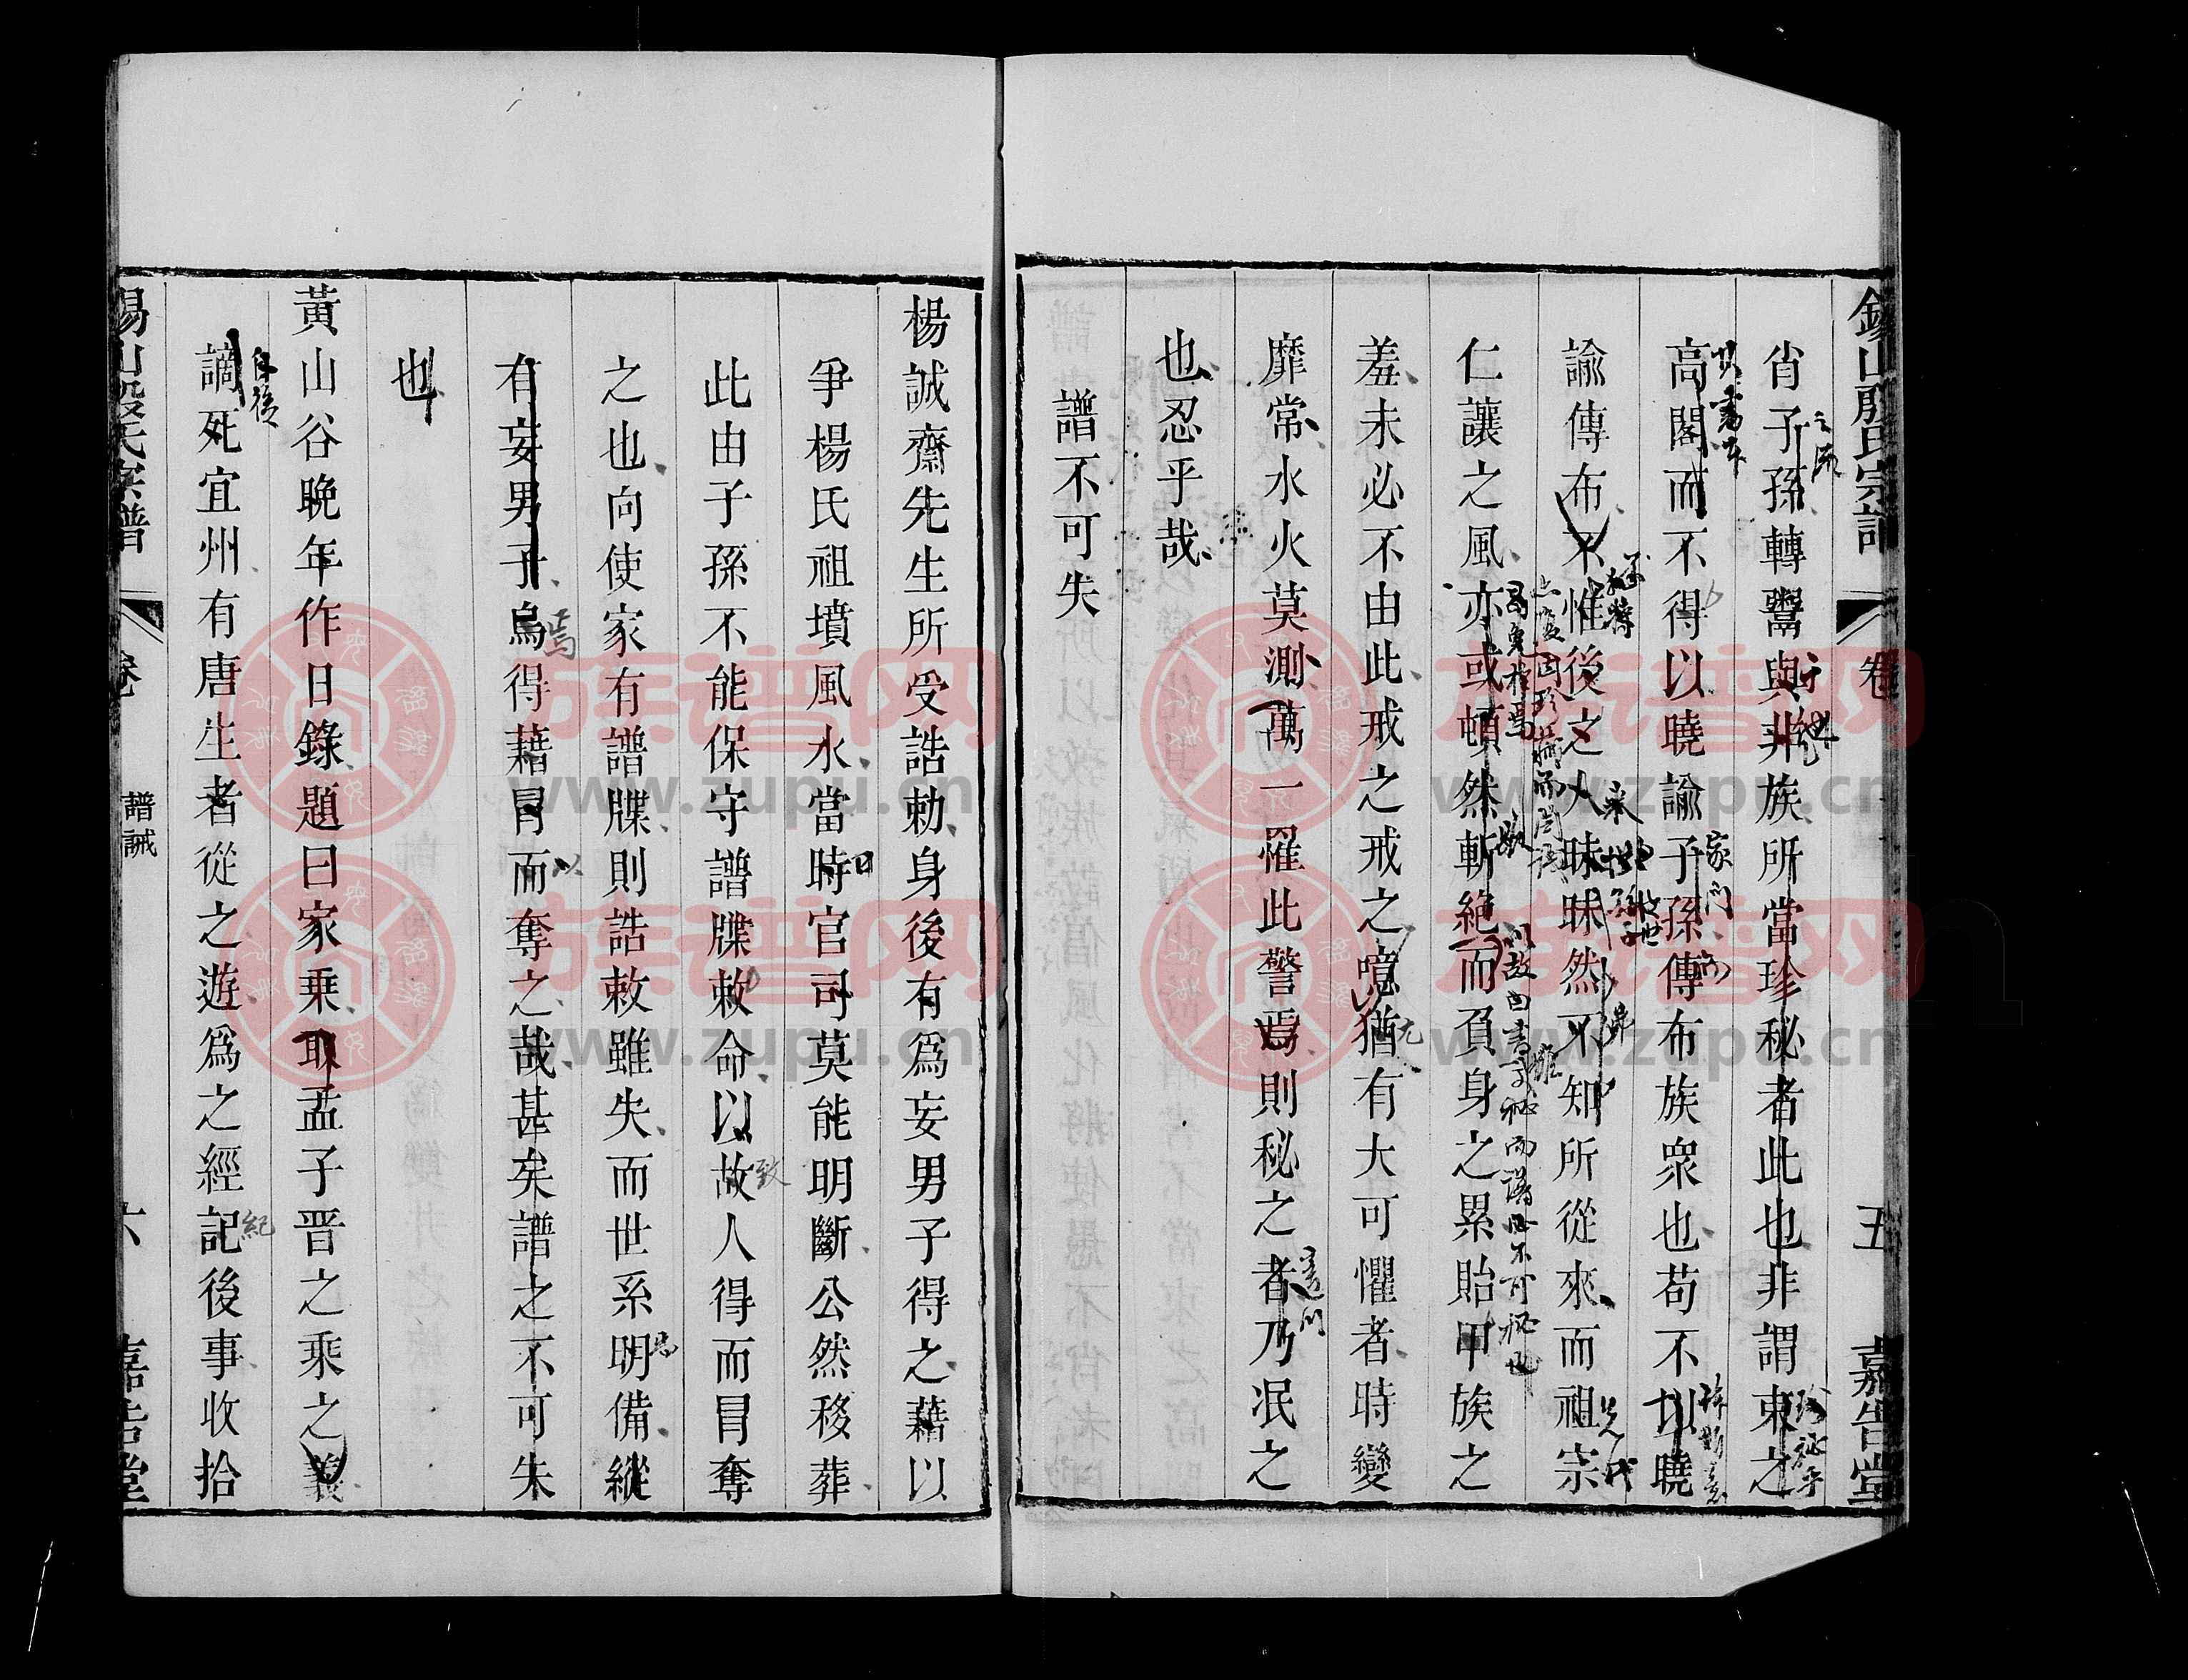 錫山殷氏宗譜
卷
五
嘉告堂
省子孫轉鬻與非族所當珍秘者此也非謂束之
高閣而不得以曉諭子孫傳布族衆也苟不以曉
諭傳布不惟後之人昧昧然不知所從來而祖宗
仁讓之風亦或頓然斬絶而負身之累貽甲族之
羞未必不由此戒之戒之噫猶有大可懼者時變
靡常水火莫測萬一罹此警焉則秘之者乃泯之
也忍乎哉
譜不可失
楊誠齋先生所受誥勅身後有爲妄男子得之藉以
爭楊氏祖墳風水當時官司莫能明斷公然移葬
此由子孫不能保守譜牒敕命以故人得而冒奪
之也向使家有譜牒則誥敕雖失而世系明備縱
有妄男子烏得藉冒而奪之哉甚矣譜之不可失
也
黃山谷晚年作日錄題曰家乗取孟子晋之乘之義
謫死宜州有唐生者從之遊爲之經記後事收拾
錫山殷氏宗譜
卷
譜誡
六
嘉告堂
焉
以
曰
致
紀
家
族谱网
www.zupu.cn
族谱网
www.zupu.cn
族谱网
www.zupu.cn
族谱网
www.zupu.cn